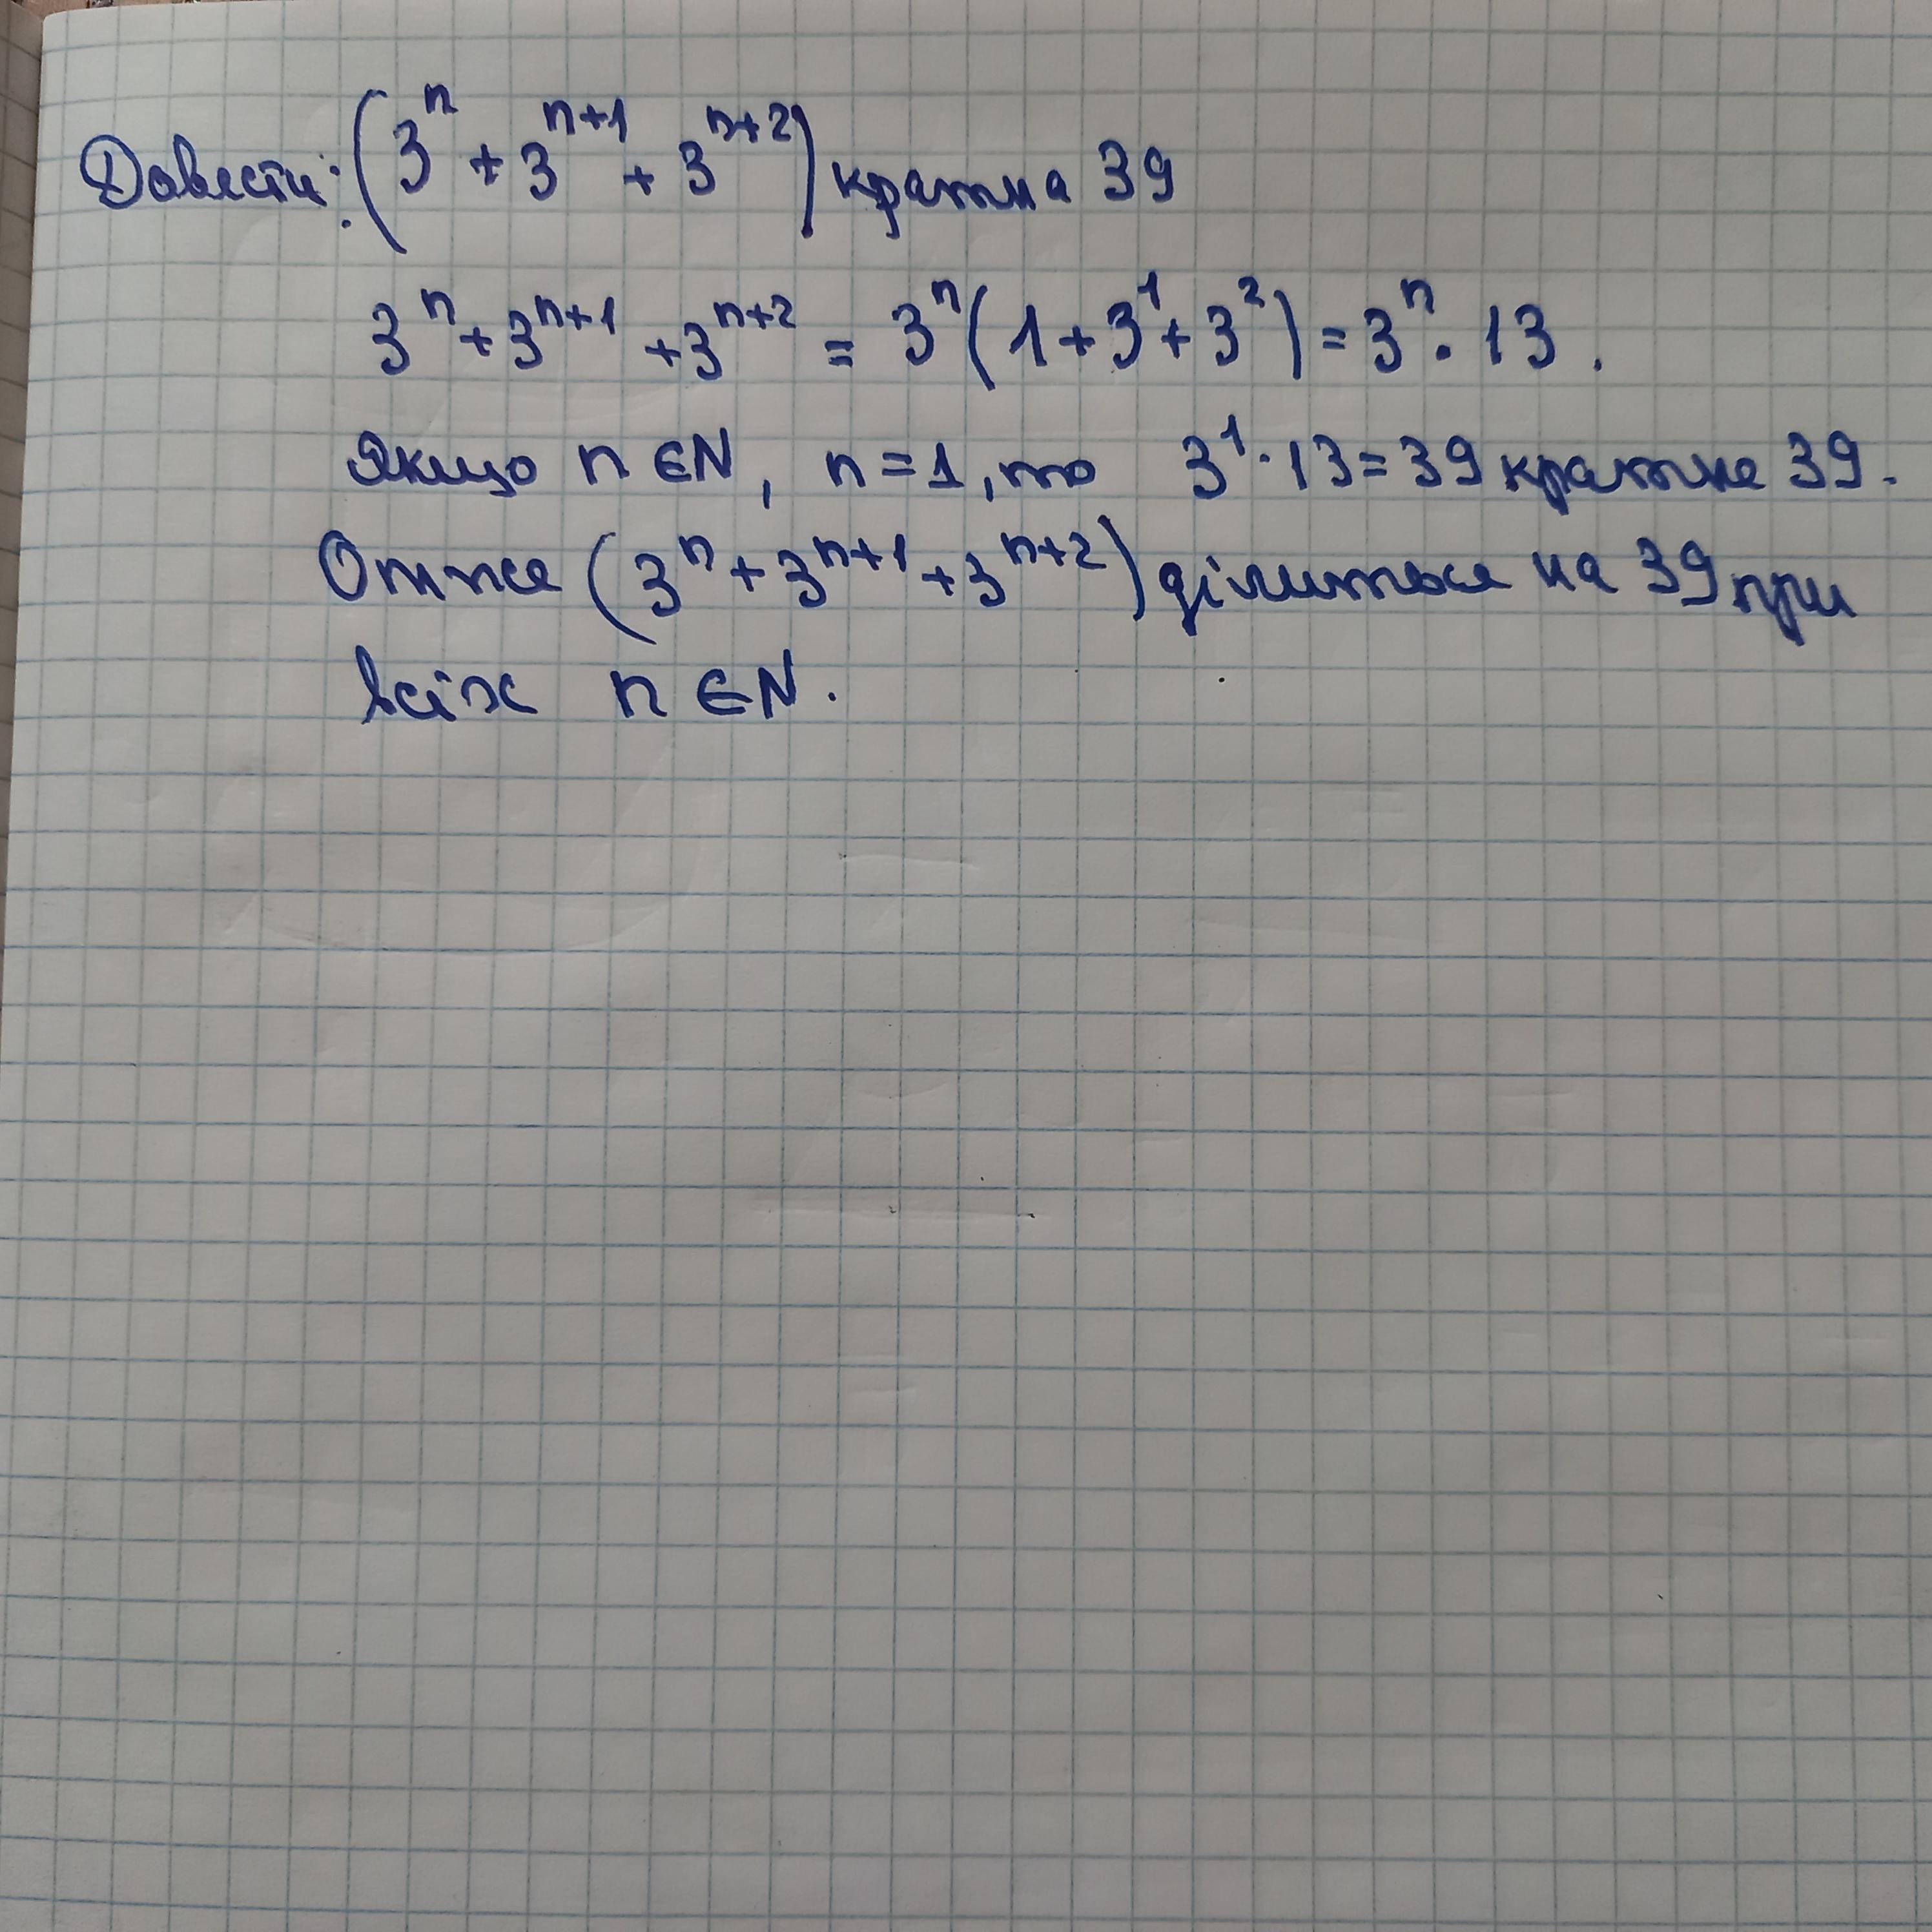 Довести: (3ⁿ + 3ⁿ⁺¹ + 3ⁿ⁺²) кратна 39
3ⁿ + 3ⁿ⁺¹ + 3ⁿ⁺² = 3ⁿ(1 + 3¹ + 3²) = 3ⁿ · 13.
Якщо n ∈ N, n = 1, то 3¹ · 13 = 39 кратне 39.
Отже (3ⁿ + 3ⁿ⁺¹ + 3ⁿ⁺²) ділиться на 39 при
всіх n ∈ N.